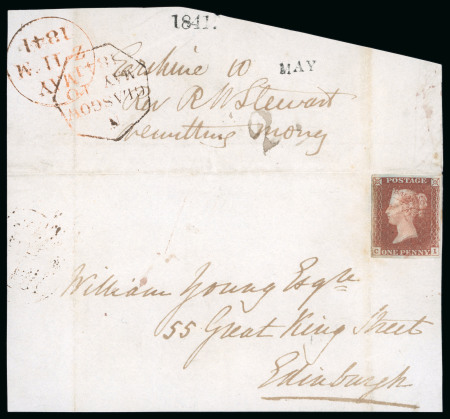 1841.
MAY
11 MAY 1841
GLASGOW
MAY
Erskine 10
Rev R W Stewart
remitting money
2
POSTAGE
ONE PENNY
William Young Esqre
55 Great King Street
Edinburgh